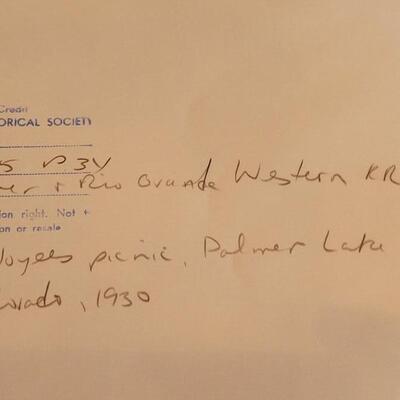 Credit
ORICAL SOCIETY
ver + Rio Grande Western RR
ion right. Not
on or resale
loyees picnic, Palmer Lake
lorado, 1930